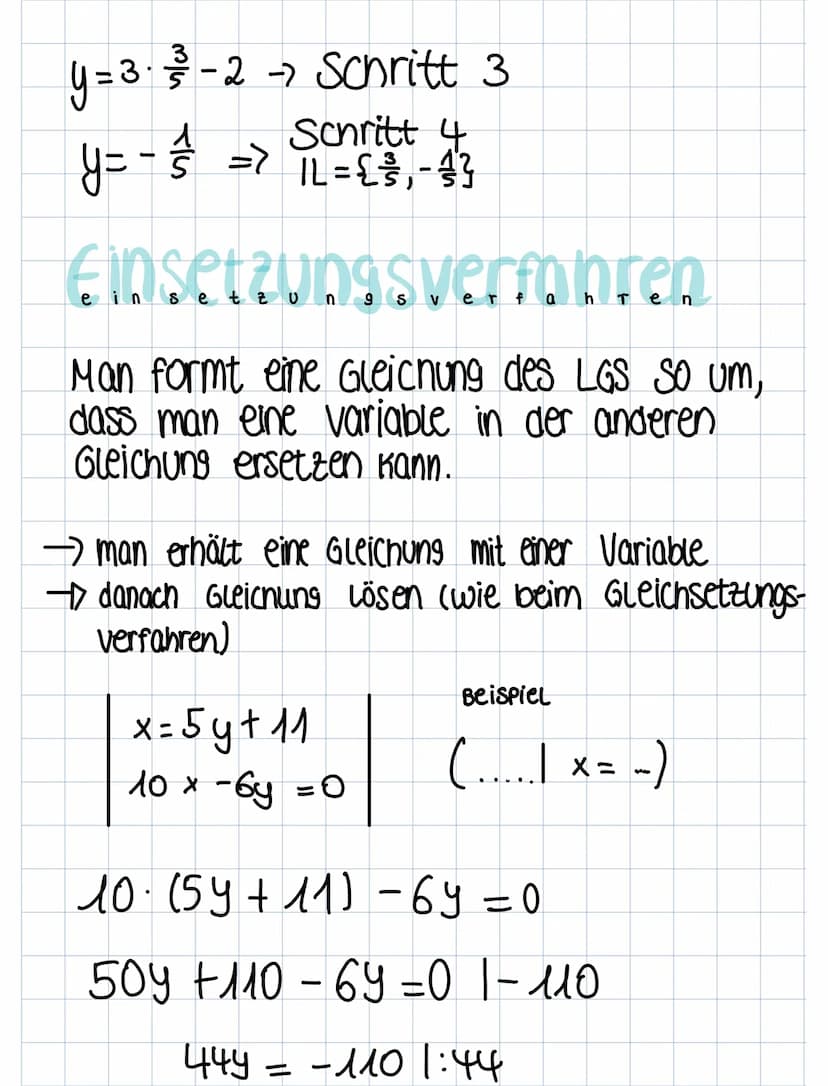 y = 3 · 3/5 - 2 → Schritt 3
y = - 1/5 => Schritt 4
IL = {3/5, - 1/5}
Einsetzungsverfahren
einsetzungsverfahren
Man formt eine Gleichung des LGS so um,
dass man eine Variable in der anderen
Gleichung ersetzen kann.
→ man erhält eine Gleichung mit einer Variable
→ danach Gleichung lösen (wie beim Gleichsetzungs-
verfahren)
Beispiel
| x = 5y + 11 |
| 10x - 6y = 0 |
(.....| x = -)
10 · (5y + 11) - 6y = 0
50y + 110 - 6y = 0 |- 110
44y = -110 |:44